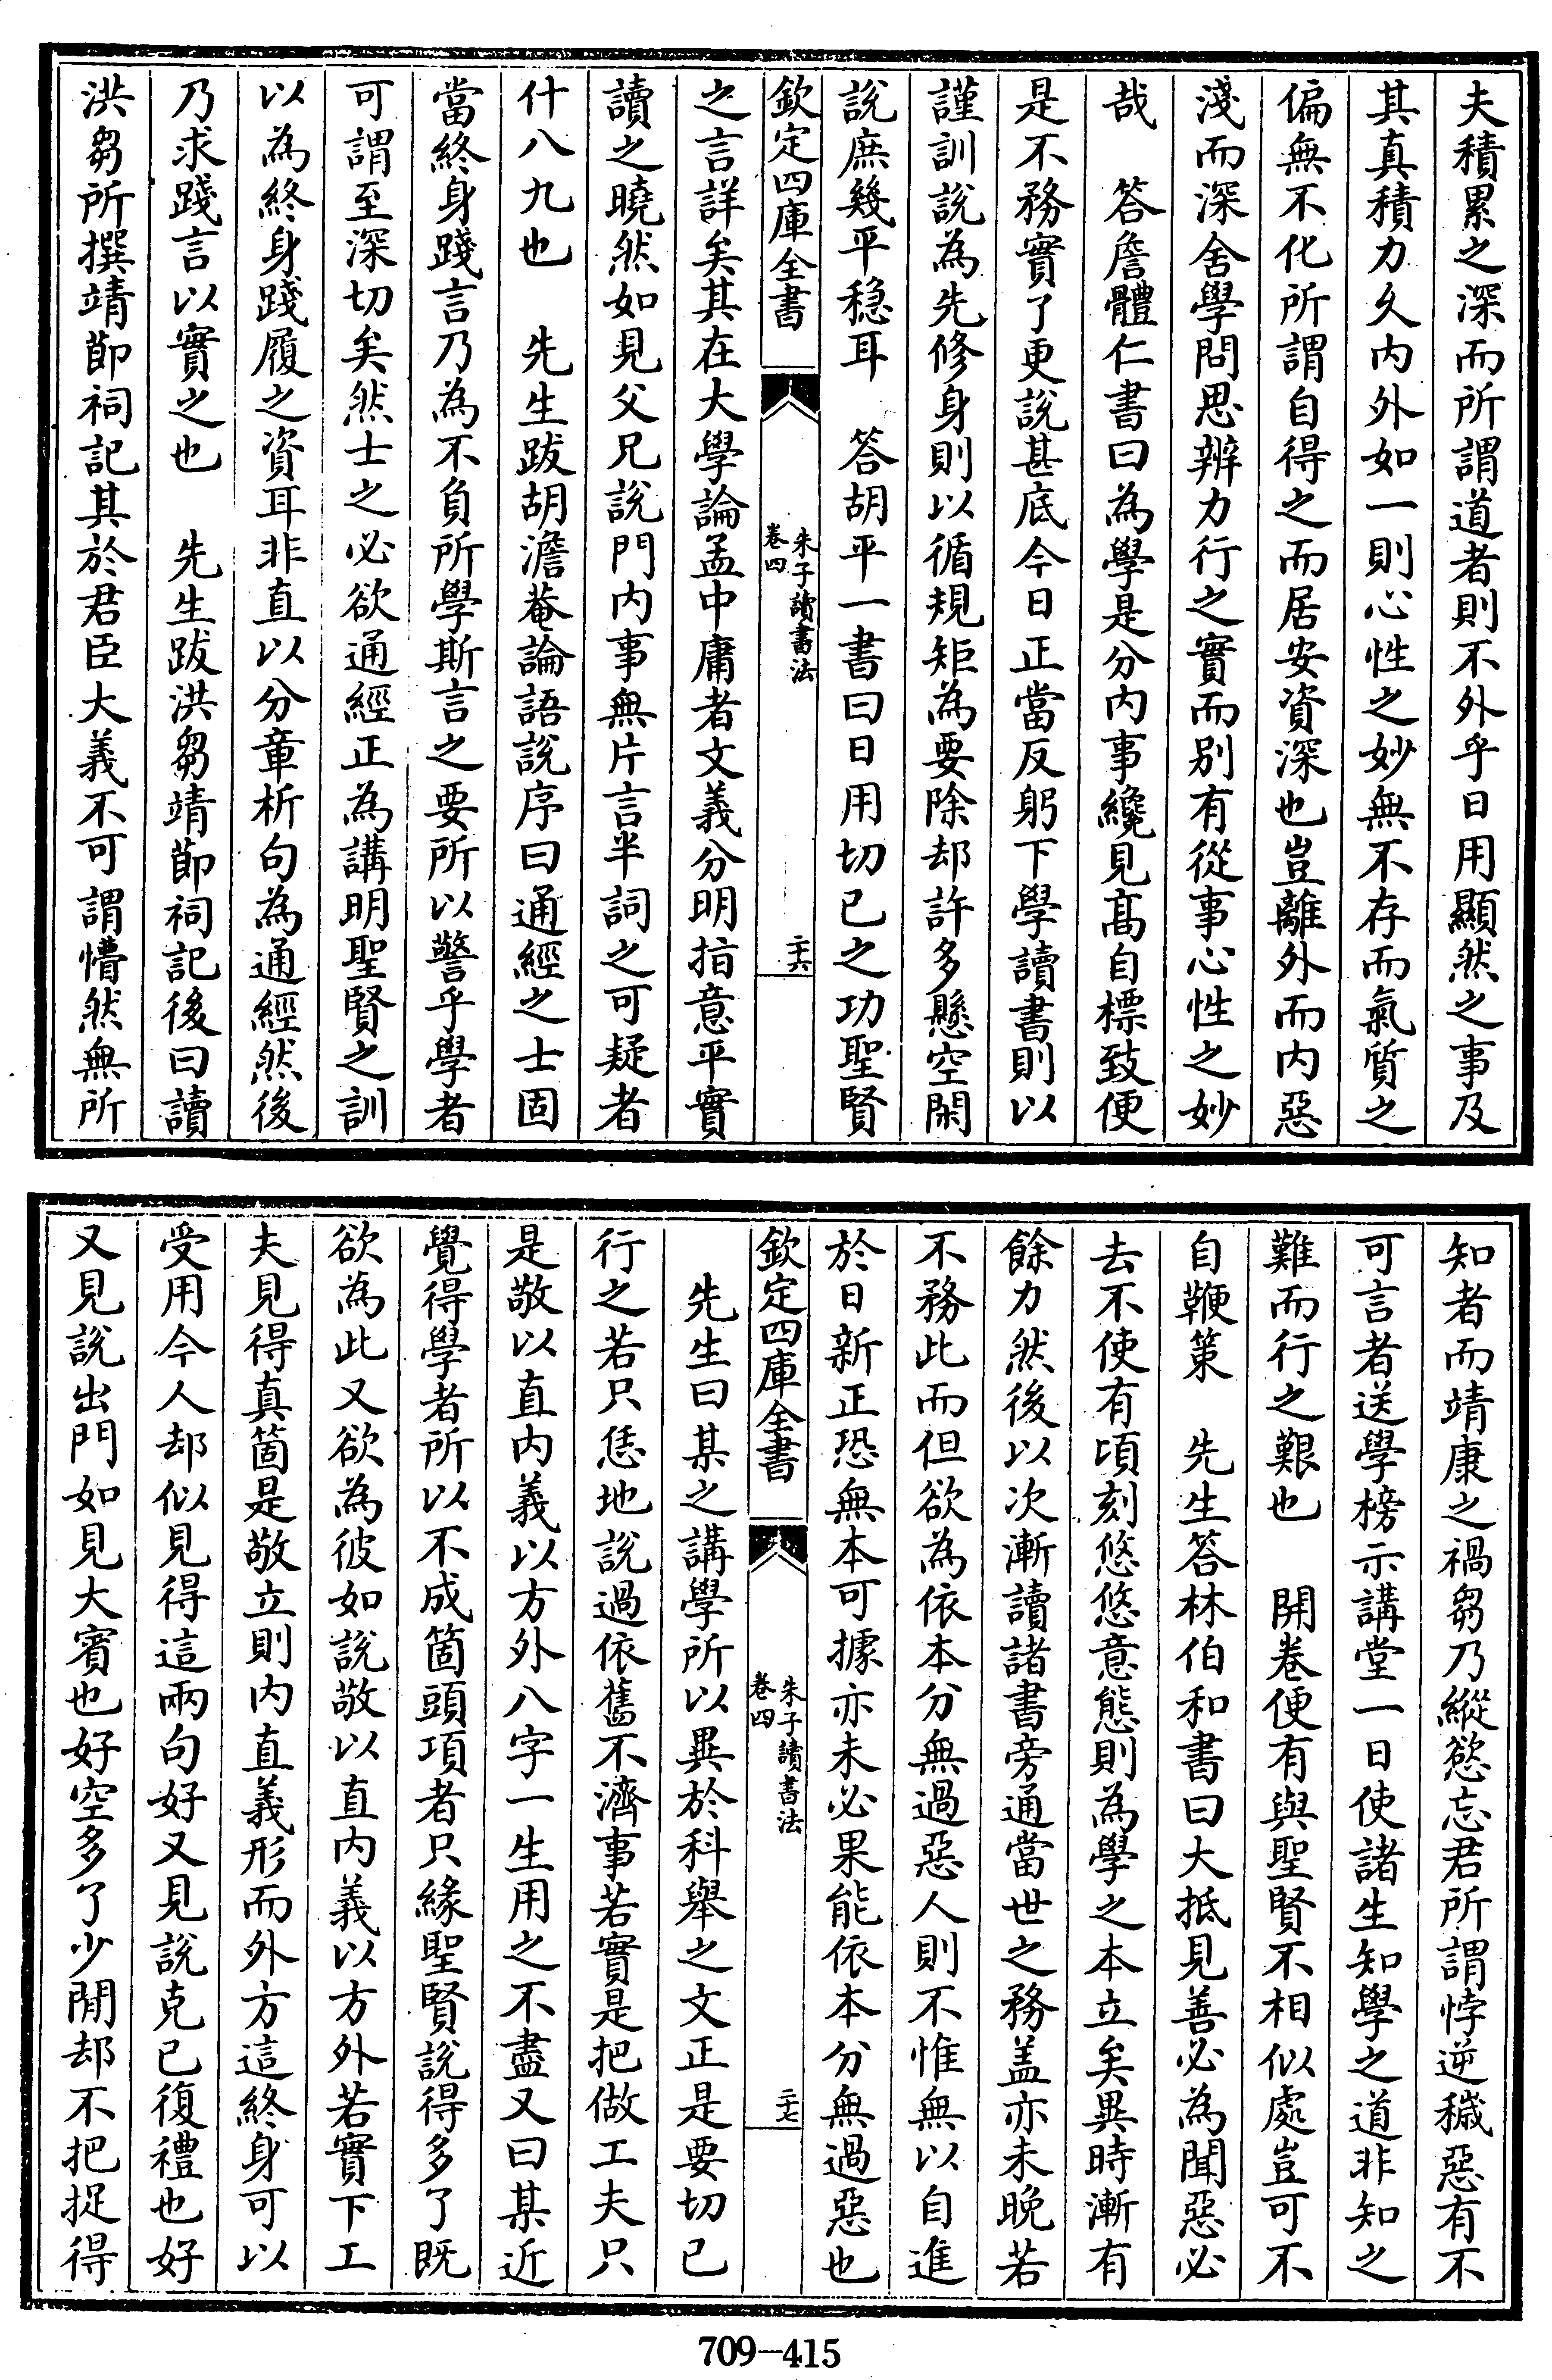 夫積累之深而所謂道者則不外乎日用顯然之事及
其真積力久內外如一則心性之妙無不存而氣質之
偏無不化所謂自得之而居安資深也豈離外而內惡
淺而深舍學問思辨力行之實而別有從事心性之妙
哉　答詹體仁書曰為學是分內事纔見髙自標致便
是不務實了更說甚底今日正當反躬下學讀書則以
謹訓說為先修身則以循規矩為要除却許多懸空閑
說庶幾平穩耳　答胡平一書曰日用切已之功聖賢
欽定四庫全書
朱子讀書法
卷四
二十六
之言詳矣其在大學論孟中庸者文義分明指意平實
讀之曉然如見父兄說門內事無片言半詞之可疑者
什八九也　先生跋胡澹菴論語說序曰通經之士固
當終身踐言乃為不負所學斯言之要所以警乎學者
可謂至深切矣然士之必欲通經正為講明聖賢之訓
以為終身踐履之資耳非直以分章析句為通經然後
乃求踐言以實之也　先生跋洪芻靖節祠記後曰讀
洪芻所撰靖節祠記其於君臣大義不可謂懵然無所
知者而靖康之禍芻乃縱慾忘君所謂悖逆穢惡有不
可言者送學榜示講堂一日使諸生知學之道非知之
難而行之艱也　開卷便有與聖賢不相似處豈可不
自鞭策　先生答林伯和書曰大抵見善必為聞惡必
去不使有頃刻悠悠意態則為學之本立矣異時漸有
餘力然後以次漸讀諸書旁通當世之務盖亦未晚若
不務此而但欲為依本分無過惡人則不惟無以自進
於日新正恐無本可據亦未必果能依本分無過惡也
欽定四庫全書
朱子讀書法
卷四
二十七
先生曰某之講學所以異於科舉之文正是要切已
行之若只恁地說過依舊不濟事若實是把做工夫只
是敬以直內義以方外八字一生用之不盡又曰某近
覺得學者所以不成箇頭項者只緣聖賢說得多了既
欲為此又欲為彼如說敬以直內義以方外若實下工
夫見得真箇是敬立則內直義形而外方這終身可以
受用今人却似見得這兩句好又見說克已復禮也好
又見說出門如見大賓也好空多了少間却不把捉得
709-415